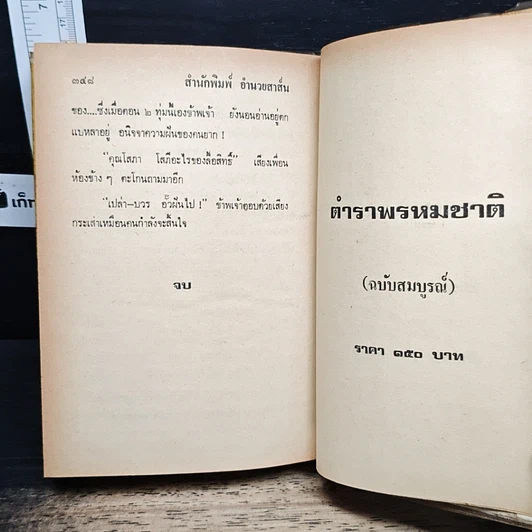 ๓๔๘ สำนักพิมพ์ อำนวยสาส์น
ของ....ซึ่งเมื่อตอน ๒ ทุ่มนี้เองข้าพเจ้า ยังนอนอ่านอยู่ตก
แบหลาอยู่ อนิจจาความฝันของคนยาก !
"คุณโสภา โสภีอะไรของล้อสิทธิ์" เสียงเพื่อน
ห้องข้าง ๆ ตะโกนถามมาอีก
"เปล่า—บวร อั๊วฝันไป !" ข้าพเจ้าตอบด้วยเสียง
กระเส่าเหมือนคนกำลังจะสิ้นใจ
จบ
ตำราพรหมชาติ
(ฉบับสมบูรณ์)
ราคา ๑๕๐ บาท
เก็ท